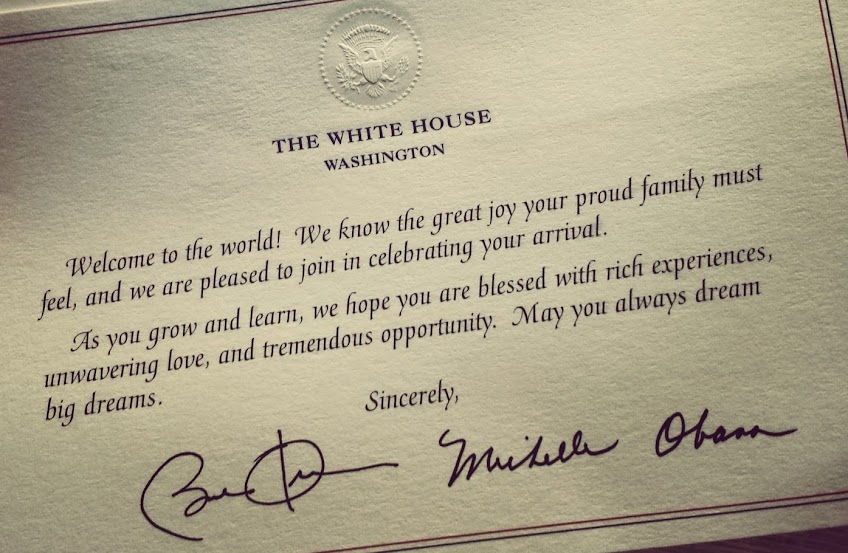 THE WHITE HOUSE
WASHINGTON
Welcome to the world! We know the great joy your proud family must
feel, and we are pleased to join in celebrating your arrival.
As you grow and learn, we hope you are blessed with rich experiences,
unwavering love, and tremendous opportunity. May you always dream
big dreams.
Sincerely,
Michelle Obama